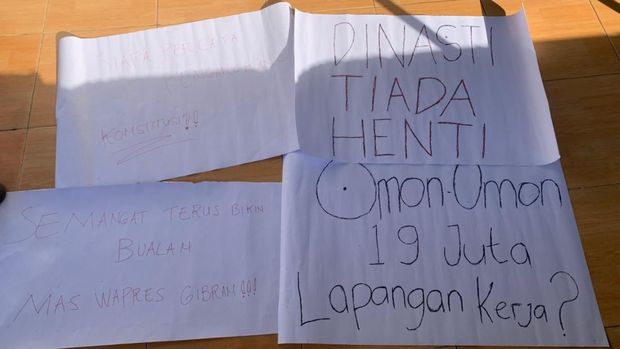 PERCAYA
KONSTITUSI?!
DINASTI
TIADA
HENTI
SEMANGAT TERUS BIKIN
BUALAN
MAS WAPRES GIBRAN!!!
Omon-Omon
19 Juta
Lapangan Kerja?